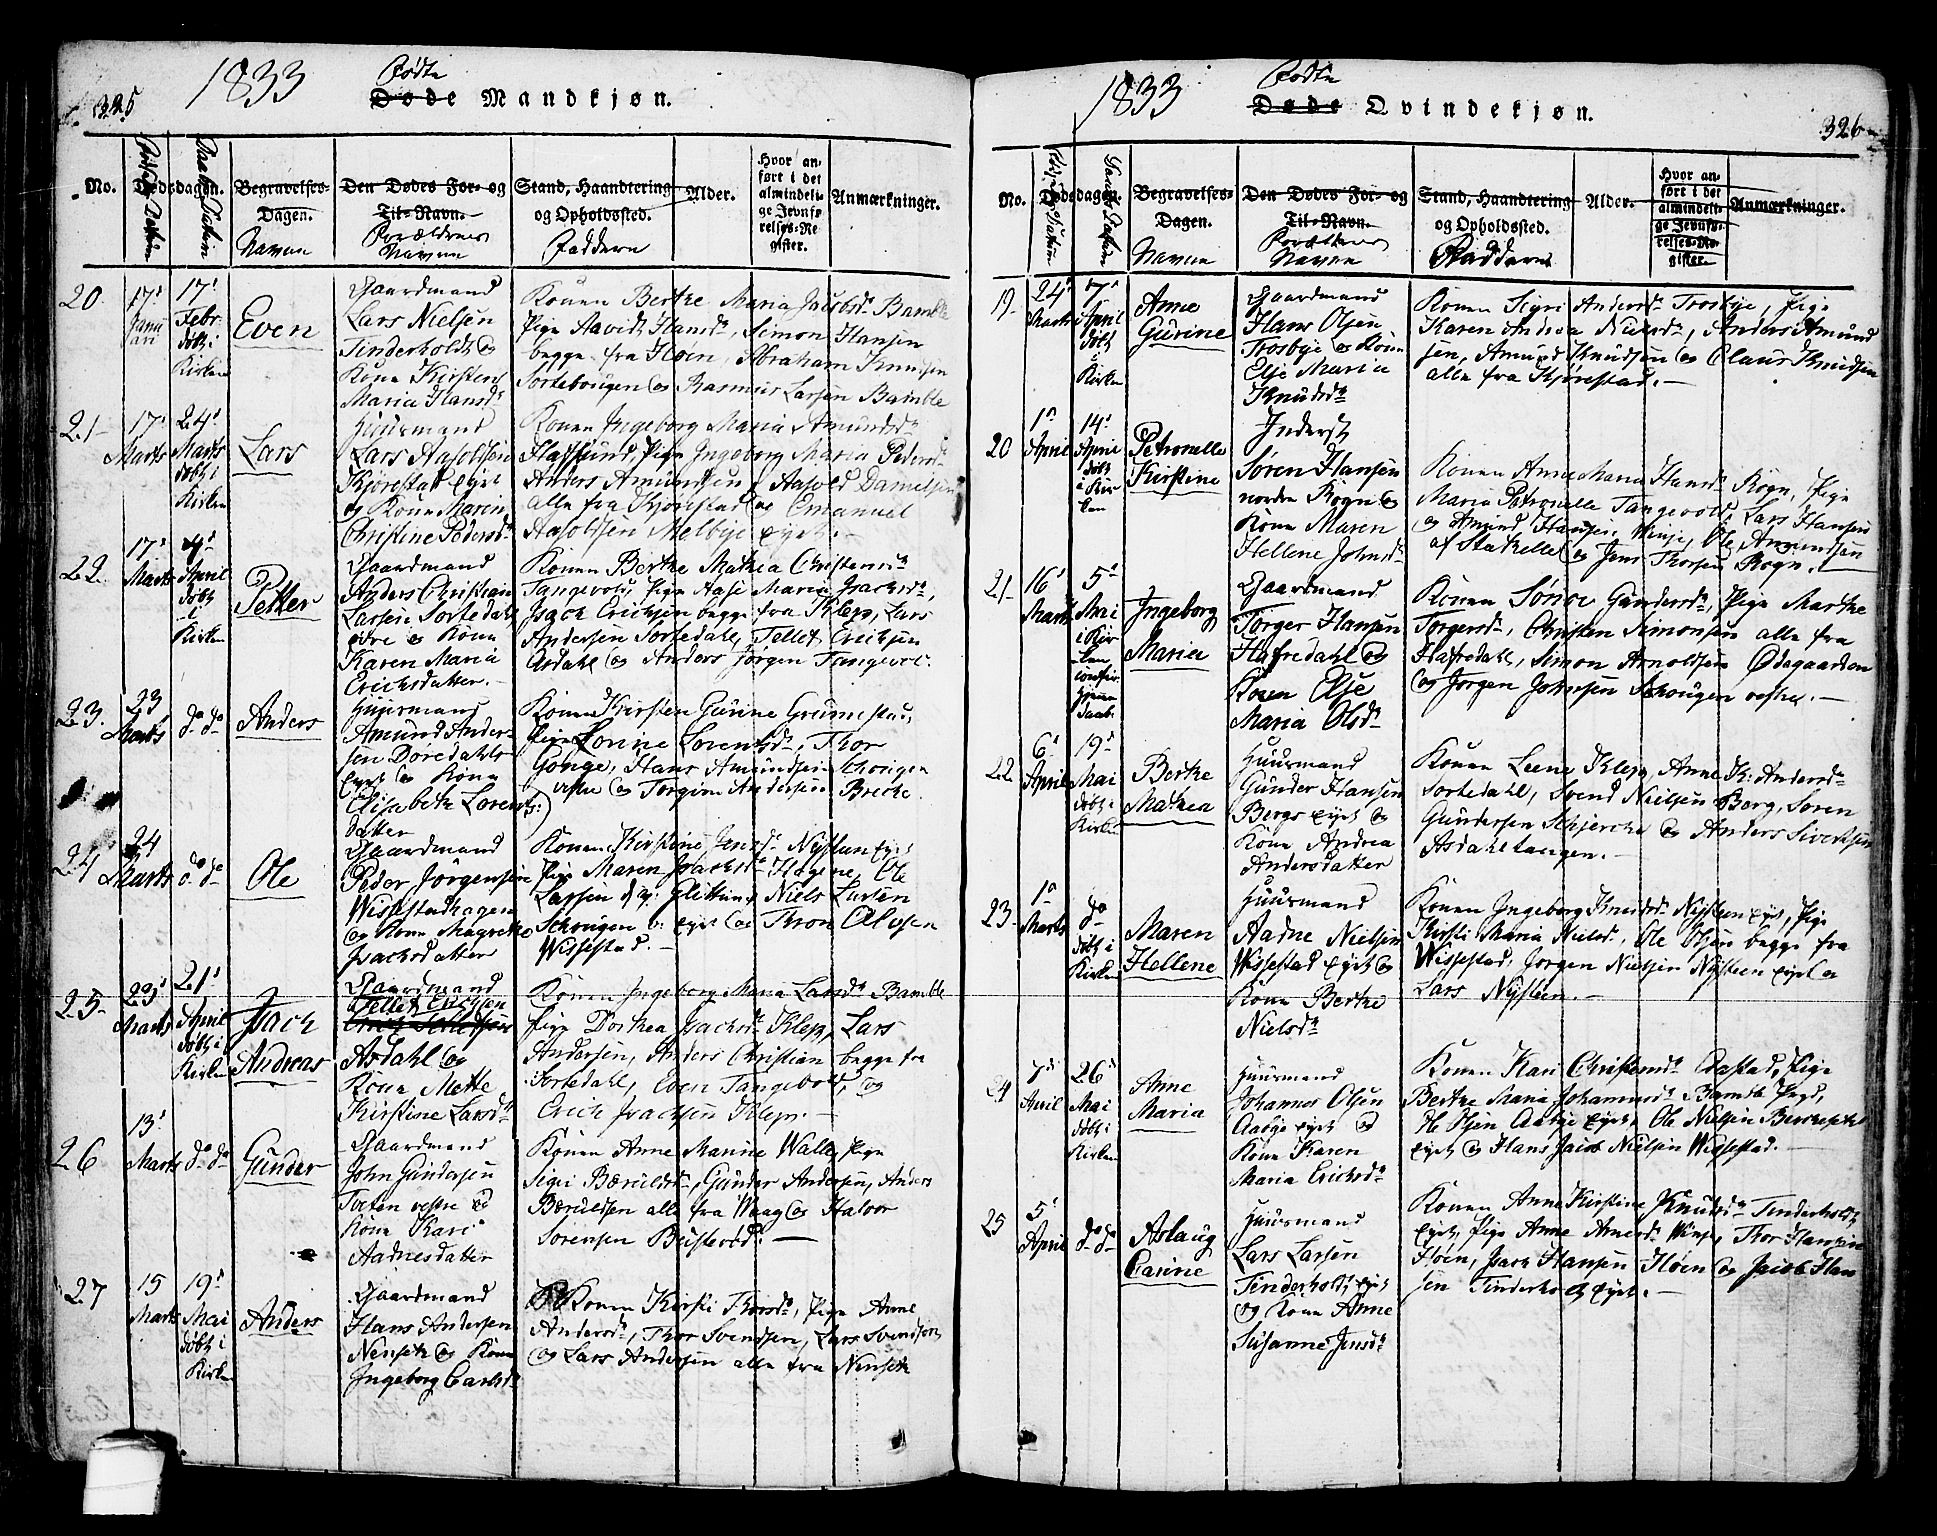 325
1833
Fødte
Døde Mandkjøn.
No.
Fødsels Datum
Dødsdagen.
Daabs Datum
Begravelses-
Dagen.
Navnn
Den Dødes For- og
Til-Navn.
Forældrenes
Navnn
Stand, Haandtering
og Opholdssted.
Faddern
Alder.
Hvor an-
ført i det
almindeli-
ge Jevnfø-
relses-Re
gister.
Anmærkninger.
20.
17d
Janu
ari
17d
Febr.
døbt i
Kirken
Even
Gaardmand
Lars Nielsen
Tinderholdt og
Kone Kirsten
Maria Hansdr
Konen Berthe Maria Jacobsdr Bamble
Pige Aavid Hansdr, Simon Hansen
begge fra Høen, Abraham Knudsen
Sortebougen og Rasmus Larsen Bamble
21-
17d
Marts
24d
Marts
døbt i
Kirken
Lars
Huusmand
Lars Aasoldsen
Kjørestad eyet
og Kone Maren
Christine Pedersdr
Konen Ingeborg Maria Amundsdr
Hafsund, Pige Ingeborg Maria Pedersdr
Anders Amundsen, Aasold Danielsen
alle fra Kjørestad og Emanuel
Aasoldsen Melbye eyet.-
22.
17d
Marts
4d
April
døbt
i
Kirken
Petter
Gaardmand
Anders Christian
Larsen Sortedahl
øvre og Kone
Karen Maria
Erichsdatter.-
Konen Berthe Mathea Christensdr
Tangevold, Pige Aase Maria Isachsdr,
Isach Erichsen begge fra Klep, Lars
Andersen Sortedahl, Tellef Erichsen
Asdahl og Anders Jørgen Tangevol.
23.
23
Marts
do do
Anders
Huusmand
Amund Ander-
sen Døredahls
Eyet og Kone
Elisabeth Lorents-
datter
Konen Kirsten Gurine Grumestad,
Pige Lorine Lorentsdr, Thor
Gonge, Hans Amundsen Schougen
vestre og Torgim Andersen Brecke.
24
24
Marts
do do
Ole
Gaardmand
Peder Jørgensen
Wissestadhagen
og Kone Magrethe
Isachsdatter
Konen Kirstine Jensdr Nysteen eyet
Pige Maren Isachsdr Hagene, Ole
Larsen Niels Larsen
Schougen eyet og Thron Olavsen
Wissestad.-
25-
23d
Marts
21d
April
døbt i
Kirken
Isach
Andreas
Gaardmand
Tellef Erichsen
Asdahl og
Kone Mette
Kirstine Larsdr
Konen Ingeborg Maria Larsdr Bamble
Pige Dorthea Isachsdr Klep, Lars
Andersen, Anders Christian begge fra
Sortedahl, Even Tangevold, og
Erich Isachsen Klep.-
26
13d
Marts
do do
Gunder
Gaardmand
John Gundersen
Toften vestre og
Kone Kari
Aadnesdatter
Konen Anne Marine Walle, Pige
Sigri Bæruldsdr, Gunder Andersen, Anders
Bærulsen alle fra Waag og Halvor
Sørensen Bustevod.-
27
15
Marts
19d
Mai
døbt i
Kirken
Anders
Gaardmand
Hans Andersen
Nenseth og Kone
Ingeborg Carlsdr
Konen Kirsti Thorsdr, Pige Anne
Andersdr, Thor Svendsen, Lars Svendsen
og Lars Andersen alle fra Nenseth
326
1833
Fødte
Døde Qvindekjøn.
No.
Dødsdagen.
Begravelses-
Dagen.
Navnn
Den Dødes For- og
Til-Navn.
Forældrenes
Navnn
Stand, Haandtering
og Opholdssted.
Faddern
Alder.
Hvor an-
ført i det
almindeli-
ge Jevnfø-
relses-Re-
gister.
Anmærkninger.
19-
24d
Marts
7d
April
døbt
i
Kirken
Anne
Gurine
Gaardmand
Hans Olsen
Trosbye og Kone
Else Maria
Knudsdr
Konen Sigri Andersdr Trosbye, Pige
Karen Andrea Nielsdr, Anders Amund
sen, Amund Knudsen og Claus Knudsen
alle fra Kjørestad.-
20
1d
April
14d
April
døbt
i Kir-
ken
Petronelle
Kirstine
Inderst
Søren Hansen
nordre Rogn og
Kone Maren
Hellene Johnsdr
Konen Anne Maria Hansdr Rogn, Pige
Maria Petronelle Tangevold, Lars Hansen
og Amund Hansen Winje, Ole Amundsen
af Stathelle og Jens Thorsen Rogn.
21-
16d
Marts
5d
Mai
i Kir-
ken
hjemme
daab.
Ingeborg
Maria
Gaardmand
Torger Hansen
Hafredahl og
Konen Else
Maria Olsdr
Konen Sørine Gundersdr, Pige Marthe
Torgersdr, Christen Simonsen alle fra
Hafredahl, Simon Arnoldsen Ødegaarden
og Jørgen Johnsen Schougen vestre.-
22.
6d
April
19d
Mai
døbt i
Kirken
Berthe
Mathea
Huusmand
Gunder Hansen
Bergs eyet og
Kone Andrea
Andersdatter
Konen Leene Klep, Anne K: Andersdr
Sortedahl, Svend Nielsen Berg, Søren
Gundersen Schjerche og Anders Sivertsen
Asdahltangen.-
23-
1d
Marts
do
døbt i
Kirken
Maren
Hellene
Huusmand
Aadne Nielsen
Wissestad eyet og
Kone Berthe
Nielsdr
Konen Ingeborg Knudsdr Nysteen eyet, Pige
Kirsti Maria Nielsdr, Ole Olsen begge fra
Wissestad, Jørgen Nielsen Nysteen eyet og
Lars Nysteen.-
24
7d
April
26d
Mai
døbt i
Kirken
Anne
Maria
Huusmand
Johannes Olsen
Aabye eyet og
Kone Karen
Maria Erichsdr
Konen Kari Christensdr Rastad, Pige
Berthe Maria Johannesdr Bamble Prgd,
Ole Olsen Aabye eyet, Ole Nielsen
eyet og Hans Jacob Nielsen Wissestad.-
25
5d
April
do do
Aslaug
Carine
Huusmand
Lars Larsen
Tinderholdt eyet
og Kone Anne
Susanne Jensdr
Konen Anne Kirstine Knudsdr Tinderholdt
eyet, Pige Anne Arnesdr Winje, Thor Hansen
Høen, Isach Hansen Høen og Jacob Han
sen Tinderholdt eyet.-